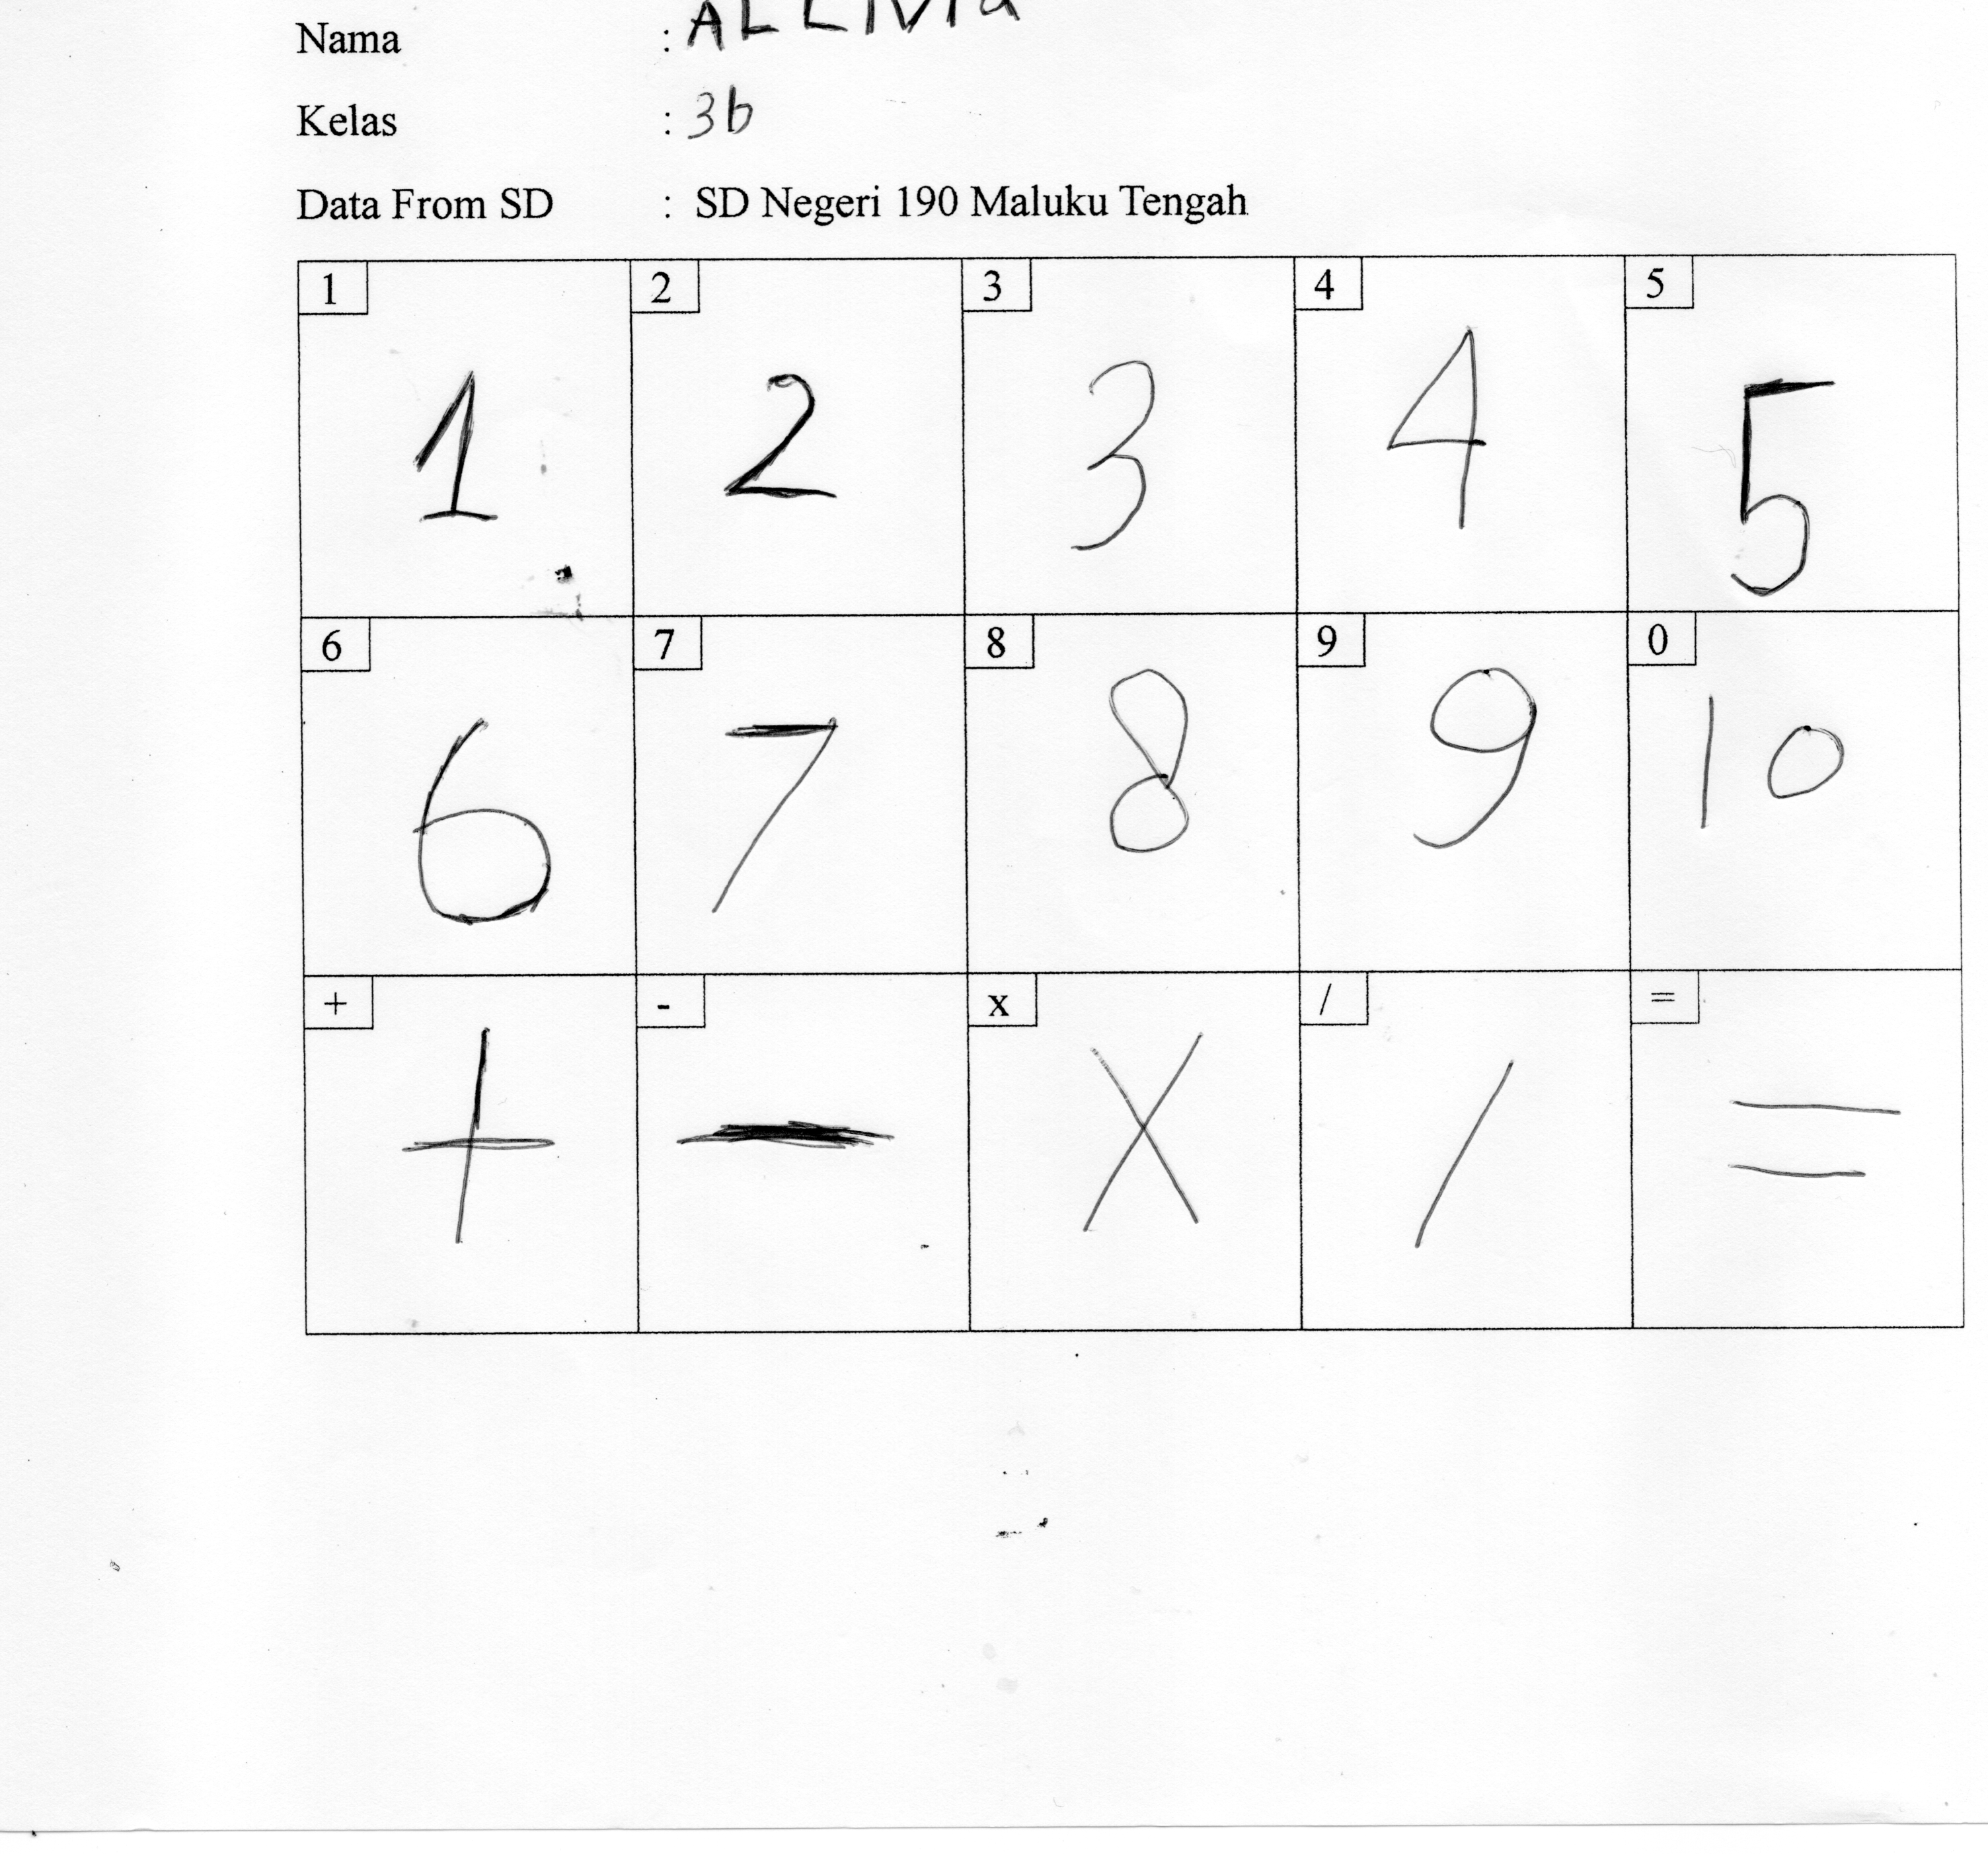 Nama : ALLIVIa
Kelas : 3b
Data From SD : SD Negeri 190 Maluku Tengah
1 2 3 4 5
1 2 3 4 5
6 7 8 9 0
6 7 8 9 10
+ - x / =
+ - x / =